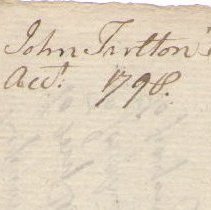 John Tartton's
Acct. 1798.